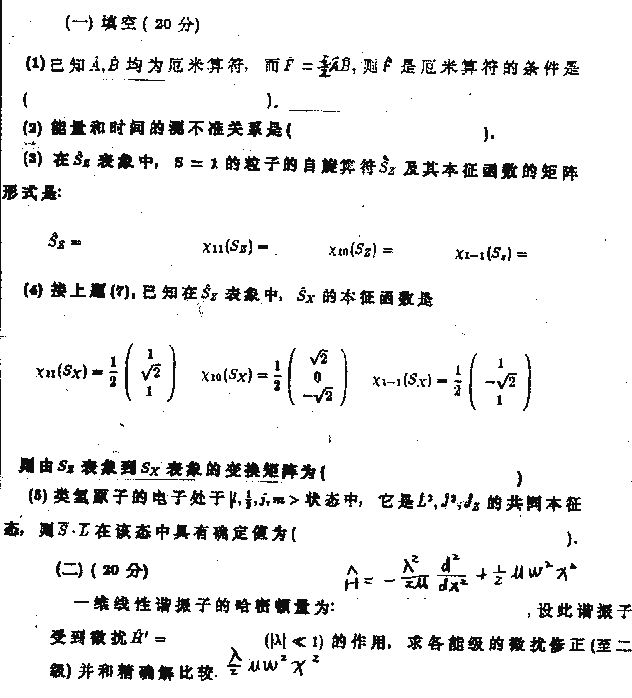 (一) 填空 ( 20 分)
(1) 已知 Â,B̂ 均为厄米算符, 而 F̂ = ÂB̂, 则 F̂ 是厄米算符的条件是
( ).
(2) 能量和时间的测不准关系是( ).
(3) 在Ŝz 表象中, S = 1 的粒子的自旋算符Ŝz 及其本征函数的矩阵
形式是:
Ŝz = χ11(Sz) = χ10(Sz) = χ1−1(Sz) =
(4) 接上题(7), 已知在Ŝz 表象中, Ŝx 的本征函数是
χ11(Sx) = 1/2 ( 1 √2 1 ) χ10(Sx) = 1/2 ( √2 0 −√2 ) χ1−1(Sx) = 1/2 ( 1 −√2 1 )
则由Sz 表象到Sx 表象的变换矩阵为( )
(5) 类氢原子的电子处于|l, 1/2, j, m > 状态中, 它是L̂², Ĵ², Ĵz 的共同本征
态, 则S̄ · L̄ 在该态中具有确定值为( ).
(二) ( 20 分) Ĥ = − λ²/2μ d²/dx² + 1/2 μω²x²
一维线性谐振子的哈密顿量为: , 设此谐振子
受到微扰Ĥ′ = (|λ| ≪ 1) 的作用, 求各能级的微扰修正(至二
级) 并和精确解比较. λ/2 μω²x²